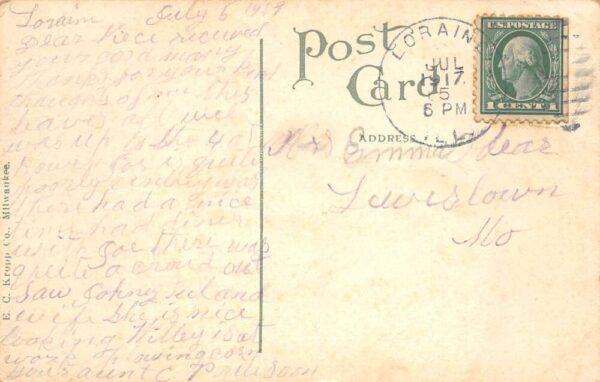 Loraine July 5 1917
Dear Niece received
your card many
thanks for your kind
thoughts of me this
leaves us well
was up the 4 at
for a quite
poorly
there had a nice
time had dinner
with Joe there was
quite a croud out
Saw Johny and
wife she is nice
looking Willey is at
work plowing corn
your aunt C
E. C. Kropp Co., Milwaukee.
Post
Card
ADDRESS
LORAINE
JUL
5
1917
6 PM
ILL.
U.S. POSTAGE
1 CENT 1
Mrs Emma Lear
Lewistown
Mo